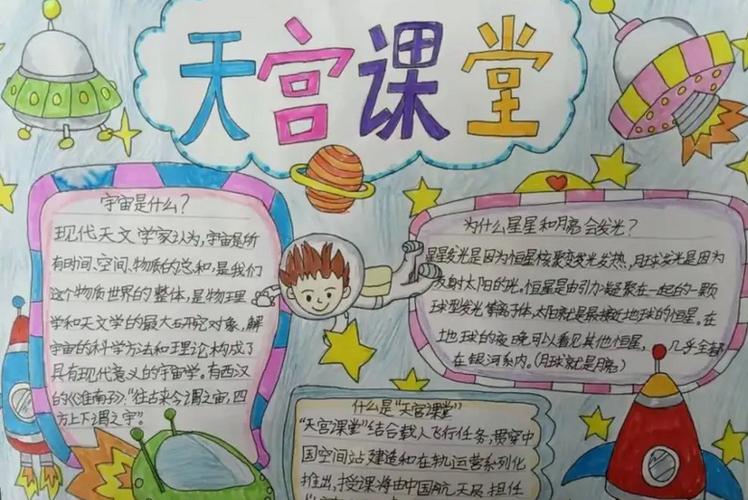 天宫课堂
宇宙是什么？
现代天文学家认为，宇宙是所
有时间、空间、物质的总和，是我们
这个物质世界的整体，是物理
学和天文学的最大研究对象，解
宇宙的科学方法和理论构成了
具有现代意义的宇宙学。有西汉
的《淮南子》，“往古来今谓之宙，四
方上下谓之宇”。
为什么星星和月亮会发光？
星星发光是因为恒星核聚变发光发热，月球发光是因为
反射太阳的光，恒星是由引力凝聚在一起的一颗
球型发光等离子体，太阳就是最接近地球的恒星。在
地球的夜晚可以看见其他恒星，几乎全都
在银河系内。（月球就是月亮）
什么是“天宫课堂”
“天宫课堂”结合载人飞行任务，贯穿中
国空间站建造和在轨运营系列化
推出，授课将由中国航天员担任